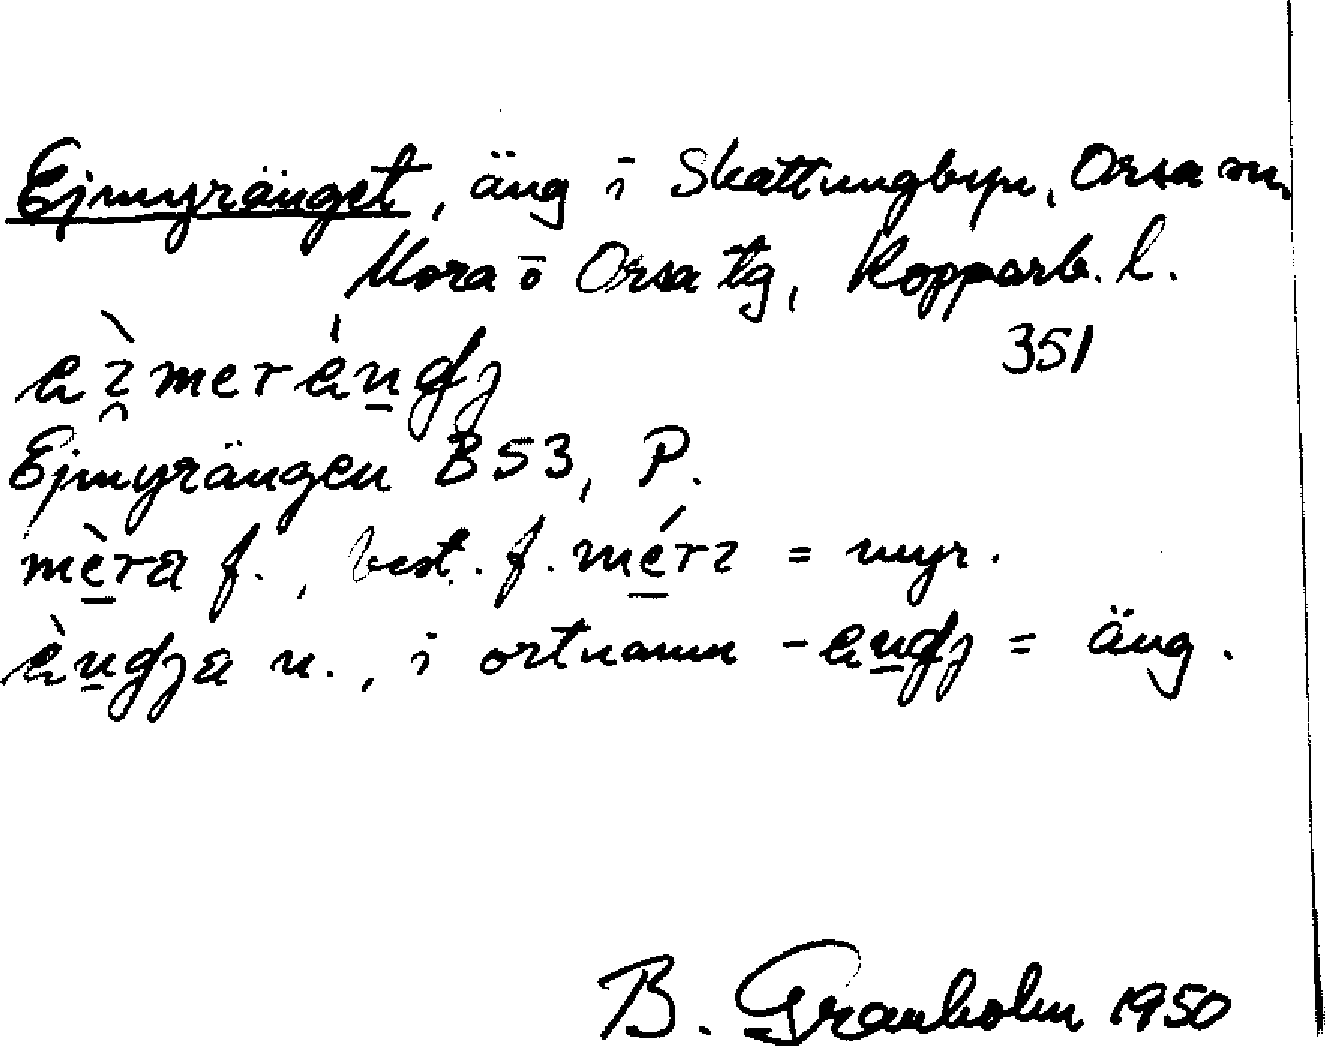 Ejmyränget, äng i Skattungbyn, Orsa sn,
Mora o Orsa tg, Kopparb. l.
351
Ejmyrängen B53, P.
mèra f., best. f. mérɩ = myr.
n., i ortnamn = äng.
B. Granholm 1950